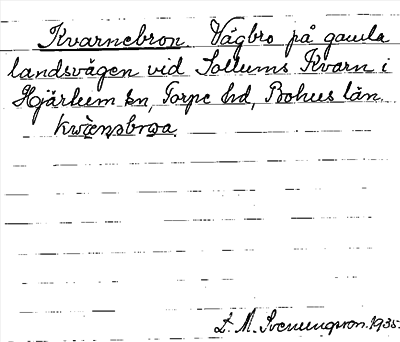 Kvarnebron. Vägbro på gamla
landsvägen vid Sollums Kvarn i
Hjärtum sn, Torpe hd, Bohus län.
kwænəbroa.
L. M. Svenungsson. 1935.